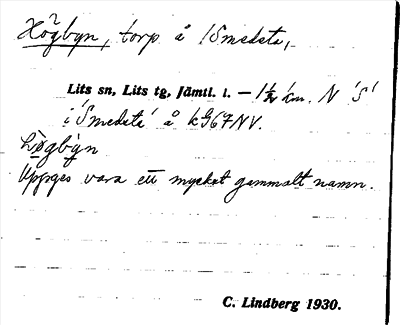 Högbyn, torp å 1 Smedsta,
Lits sn, Lits tg, Jämtl. l. — 1½ cm. N 'S'
i 'Smedsta' å kG67NV.
Uppges vara ett mycket gammalt namn.
C. Lindberg 1930.